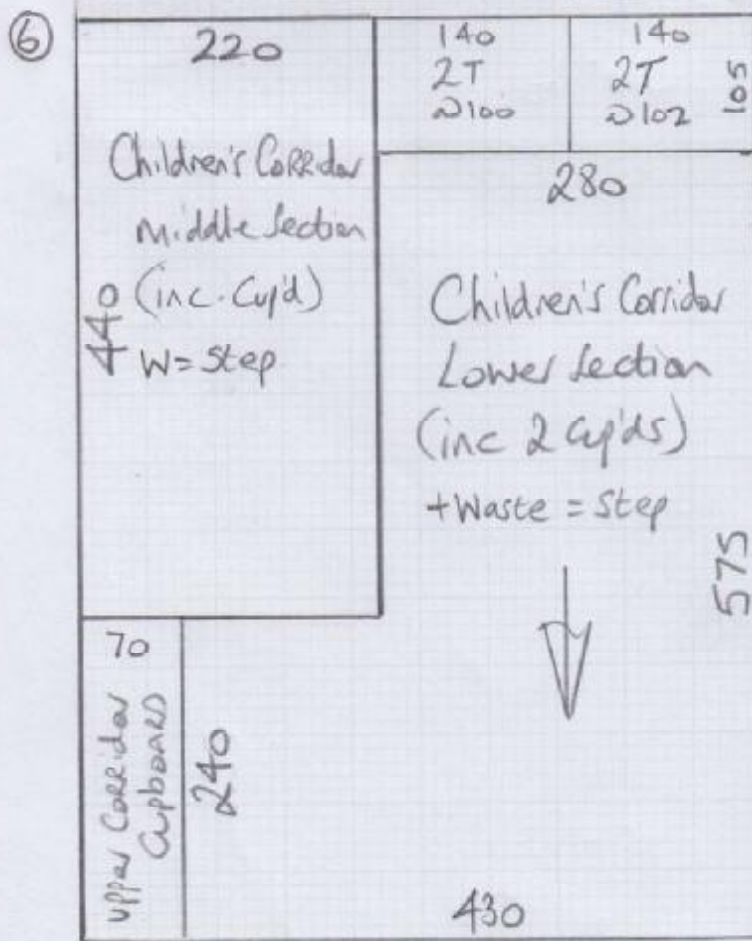 6
220
Children's Corridor
Middle Section
(inc. Cup'd)
W = Step
440
140
2T
N100
140
2T
N102
105
280
Children's Corridor
Lower Section
(inc 2 Cup'ds)
+ Waste = Step
575
70
Upper Corridor
Cupboard
240
430